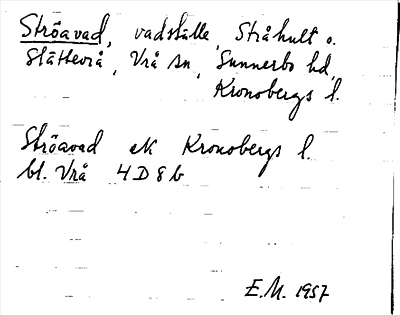 Ströavad, vadställe, Stråhult o.
Slätteviå, Vrå sn, Sunnerbo hd,
Kronobergs l.
Ströavad ek Kronobergs l.
bl. Vrå 4D8b
E.M. 1957